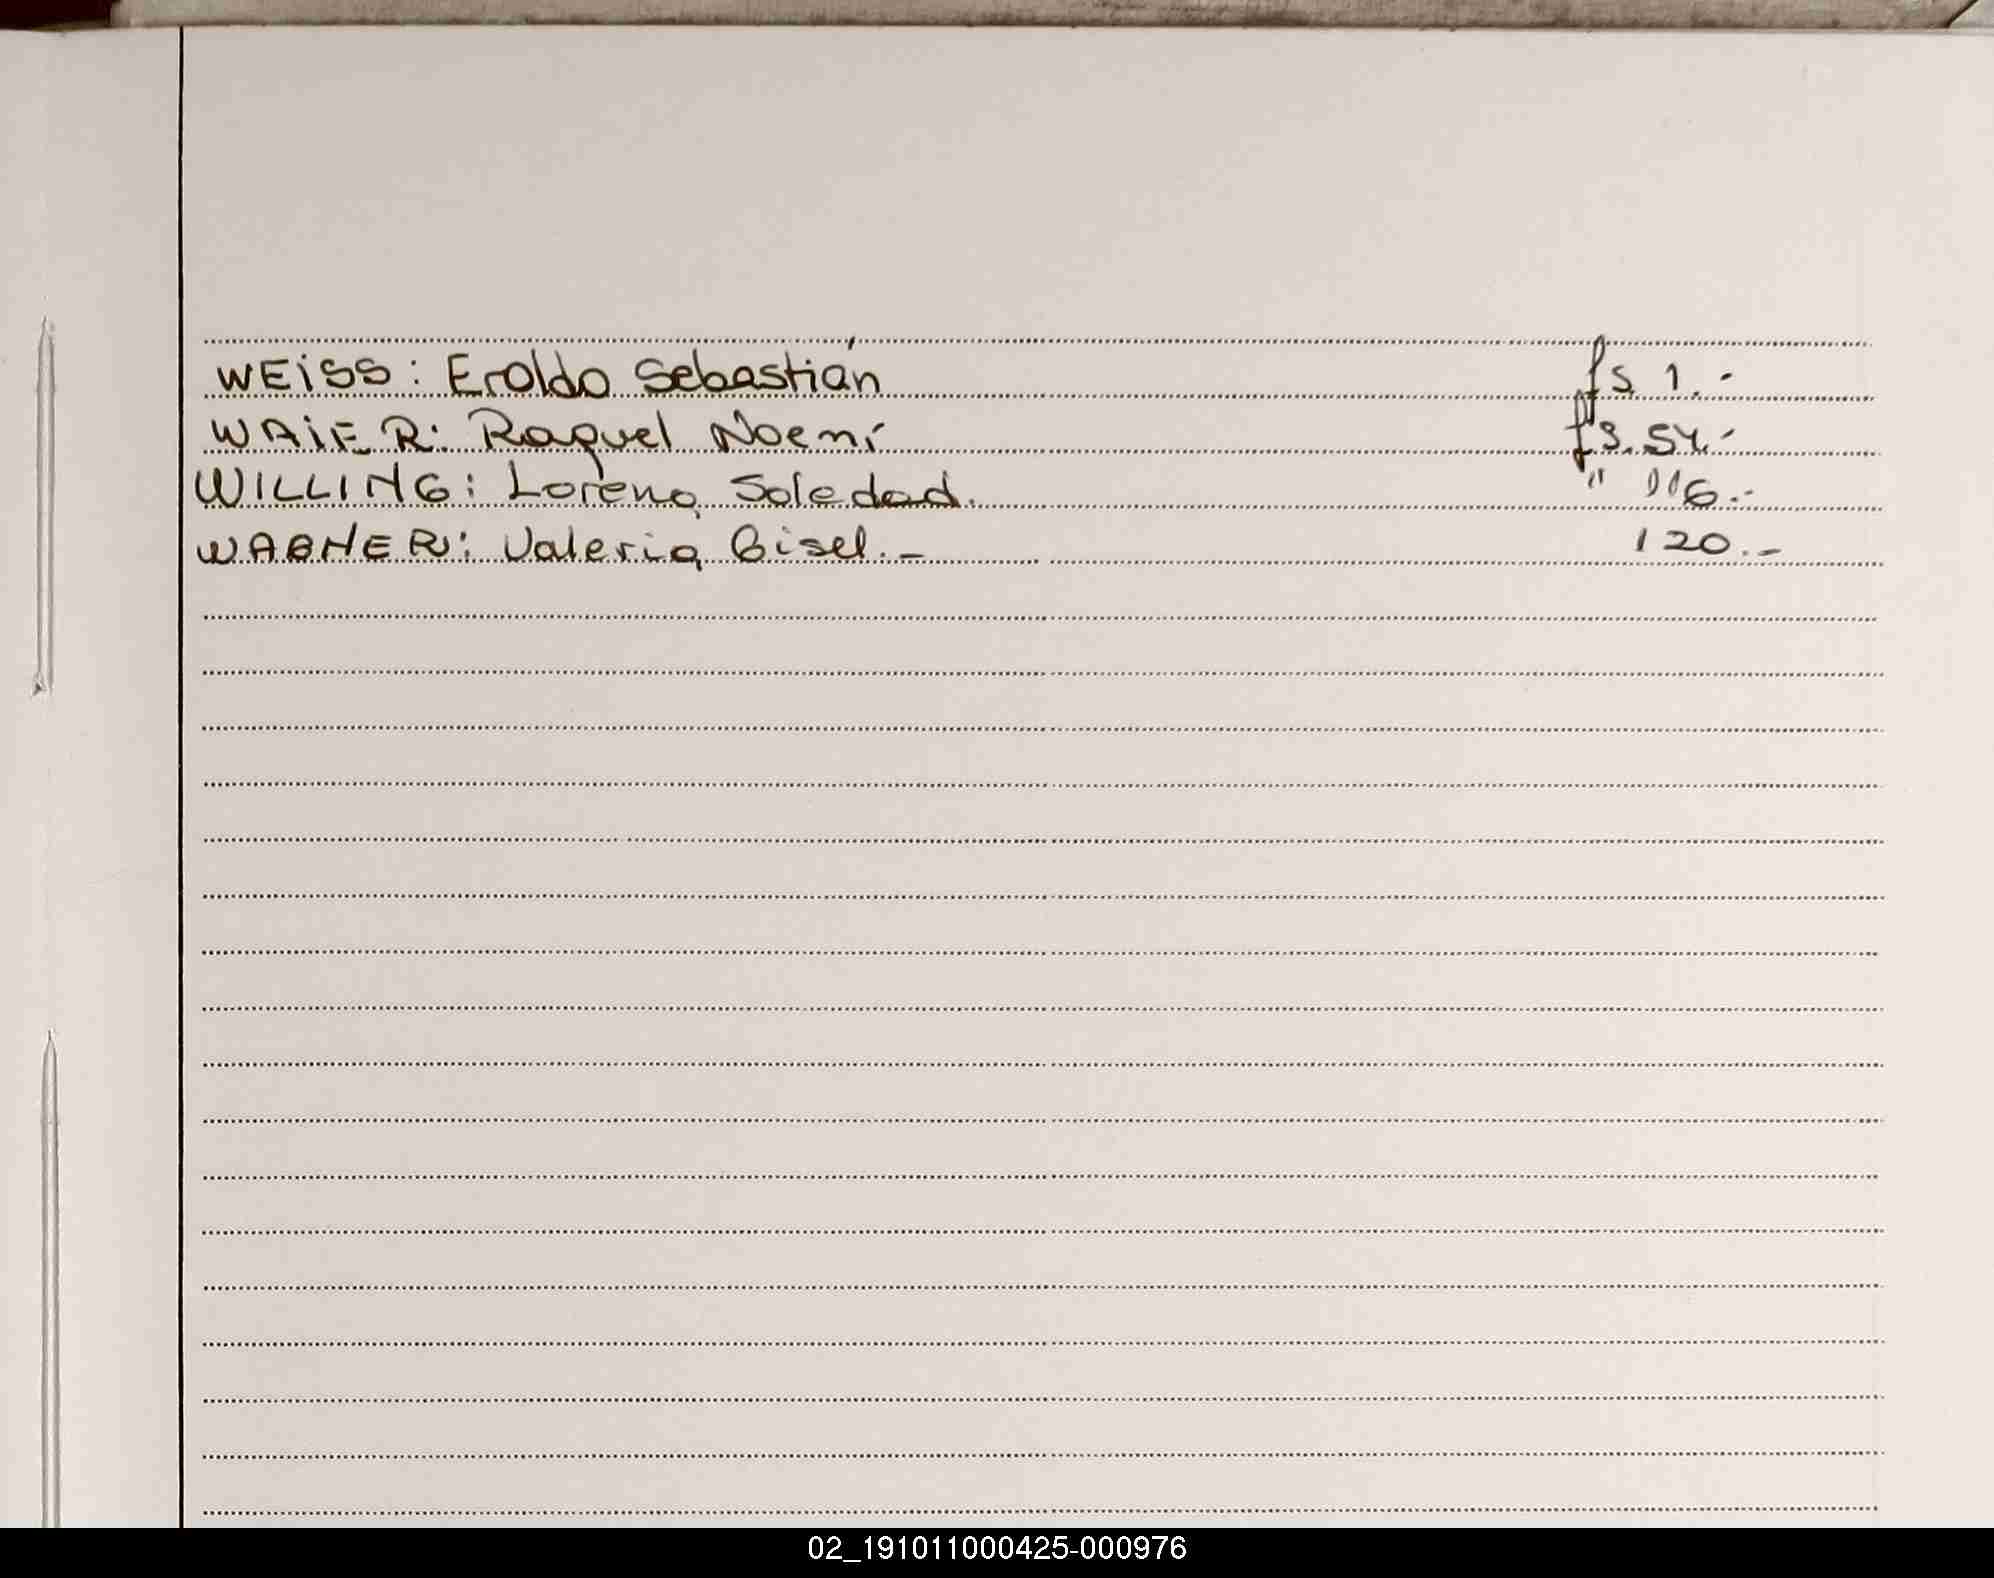 WEiSS: Eroldo Sebastián fs 1.-
WAiER: Raquel Noemí fs. 54.-
WILLING: Lorena Soledad. " 116.-
WAGNER: Valeria Gisel.- 120.-
02_191011000425-000976